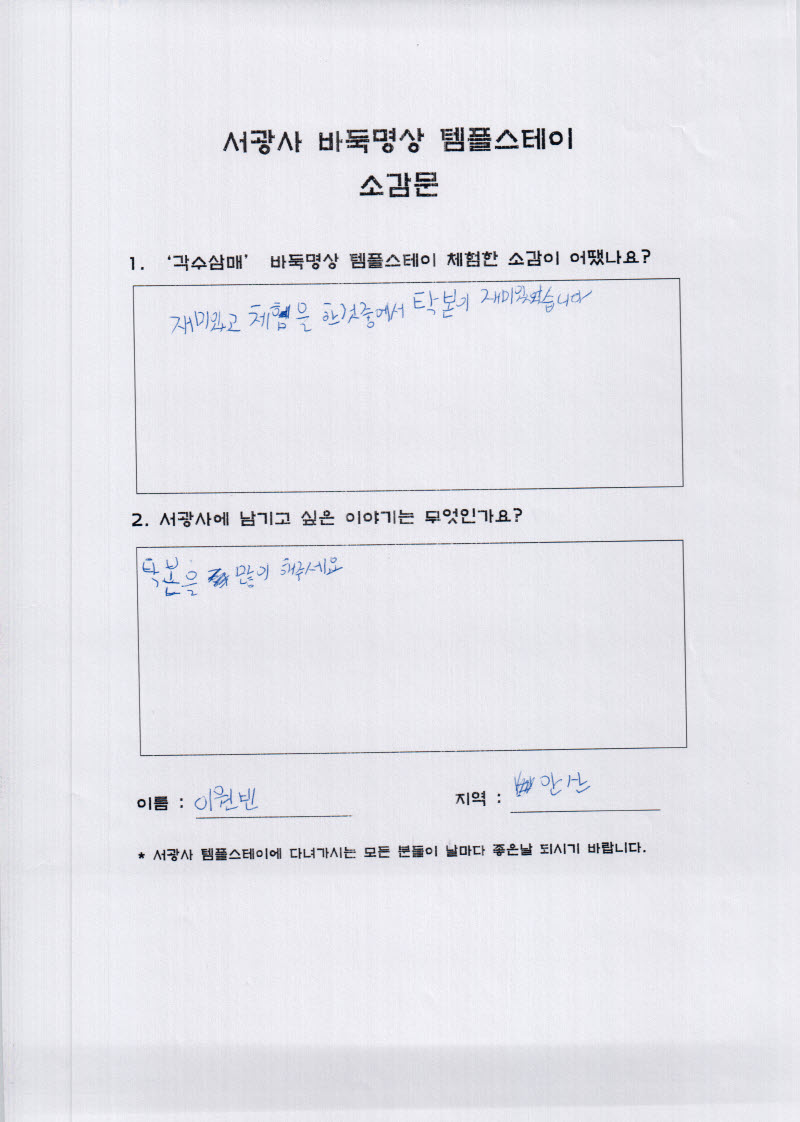 서광사 바둑명상 템플스테이
소감문
1. '각수삼매' 바둑명상 템플스테이 체험한 소감이 어땠나요?
재미있고 체험을 한것중에서 탁본이 재미있었습니다
2. 서광사에 남기고 싶은 이야기는 무엇인가요?
탁본을 많이 해주세요
이름 : 이원빈 지역 : 안산
* 서광사 템플스테이에 다녀가시는 모든 분들이 날마다 좋은날 되시기 바랍니다.